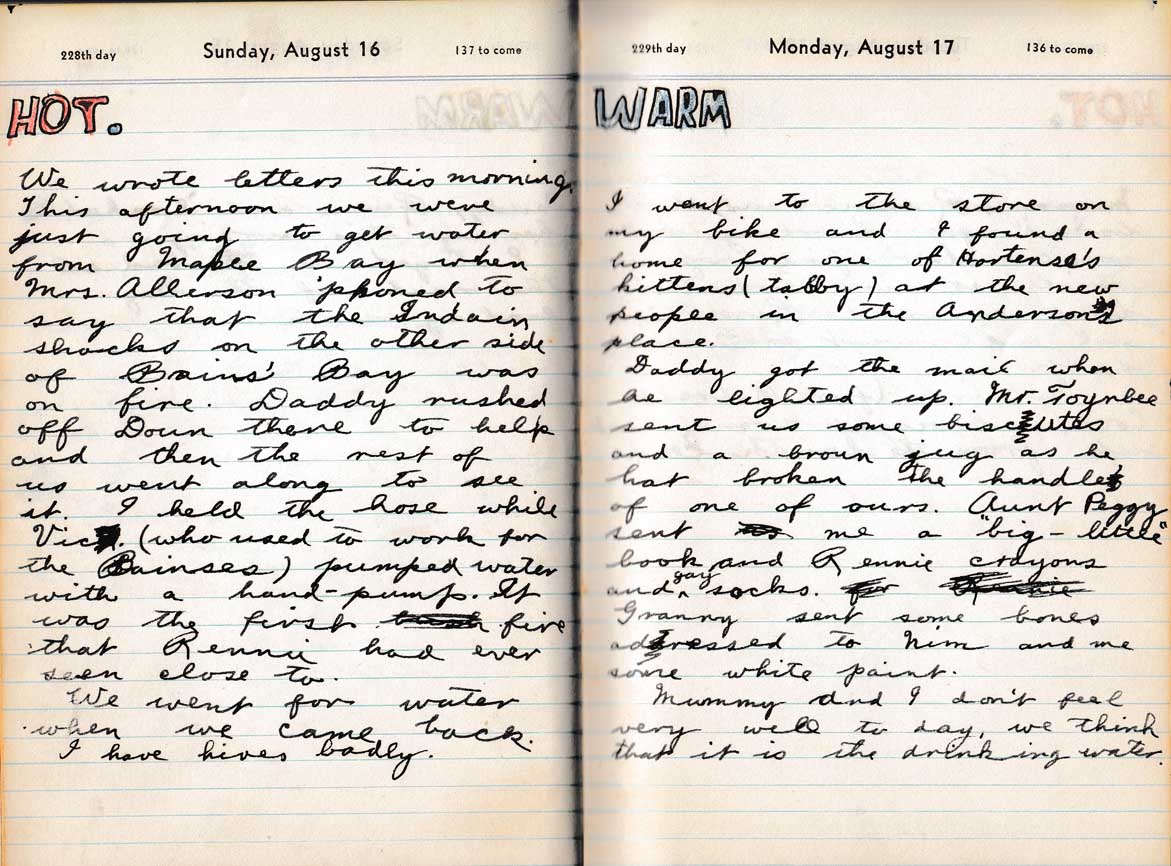 228th day Sunday, August 16 137 to come
HOT.
We wrote letters this morning.
This afternoon we were
just going to get water
from Maple Bay when
Mrs. Allerson 'phoned to
say that the Indain
shacks on the other side
of Bains' Bay was
on fire. Daddy rushed
off Doun there to help
and then the rest of
us went along to see
it. I held the hose while
Vic. (who used to work for
the Bainses) pumped water
with a hand-pump. It
was the first fire
that Rennie had ever
seen close to.
We went for water
when we came back.
I have hives badly.
229th day Monday, August 17 136 to come
WARM
I went to the store on
my bike and I found a
home for one of Hortense's
kittens (tabby) at the new
people in the Anderson's
place.
Daddy got the mail when
he lighted up. Mr. Toynbee
sent us some biscuites
and a broun jug as he
hat broken the handle
of one of ours. Aunt Peggy
sent me a "big-little"
book and Rennie crayons
and gay socks.
Granny sent some bones
adressed to Nim and me
some white paint.
Mummy and I don't feel
very well to day, we think
that it is the drinking water.